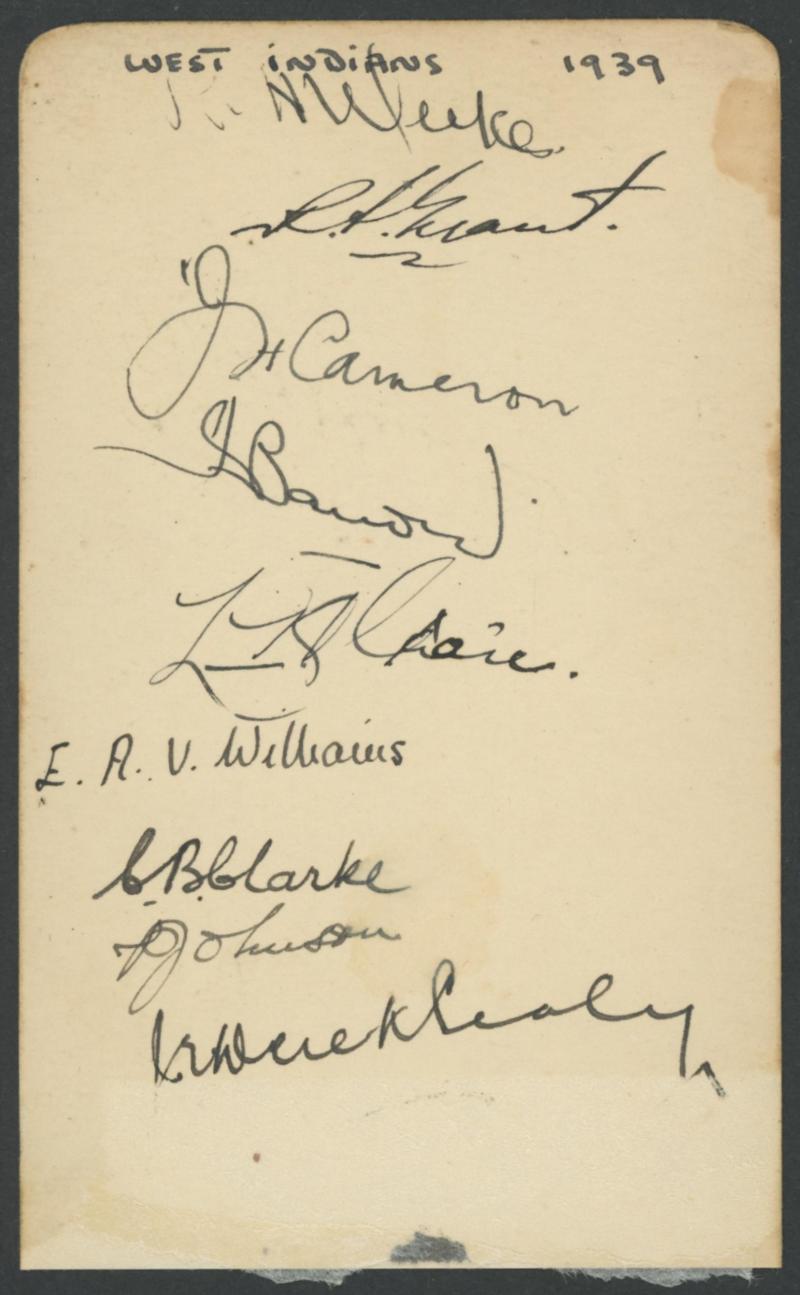 WEST INDIANS 1939
K. H Weekes
R. S. Grant.
J H Cameron
I Barrow
L. N. Constantine
E. A. V. Williams
C. B. Clarke
T Johnson
J E Derek Sealy